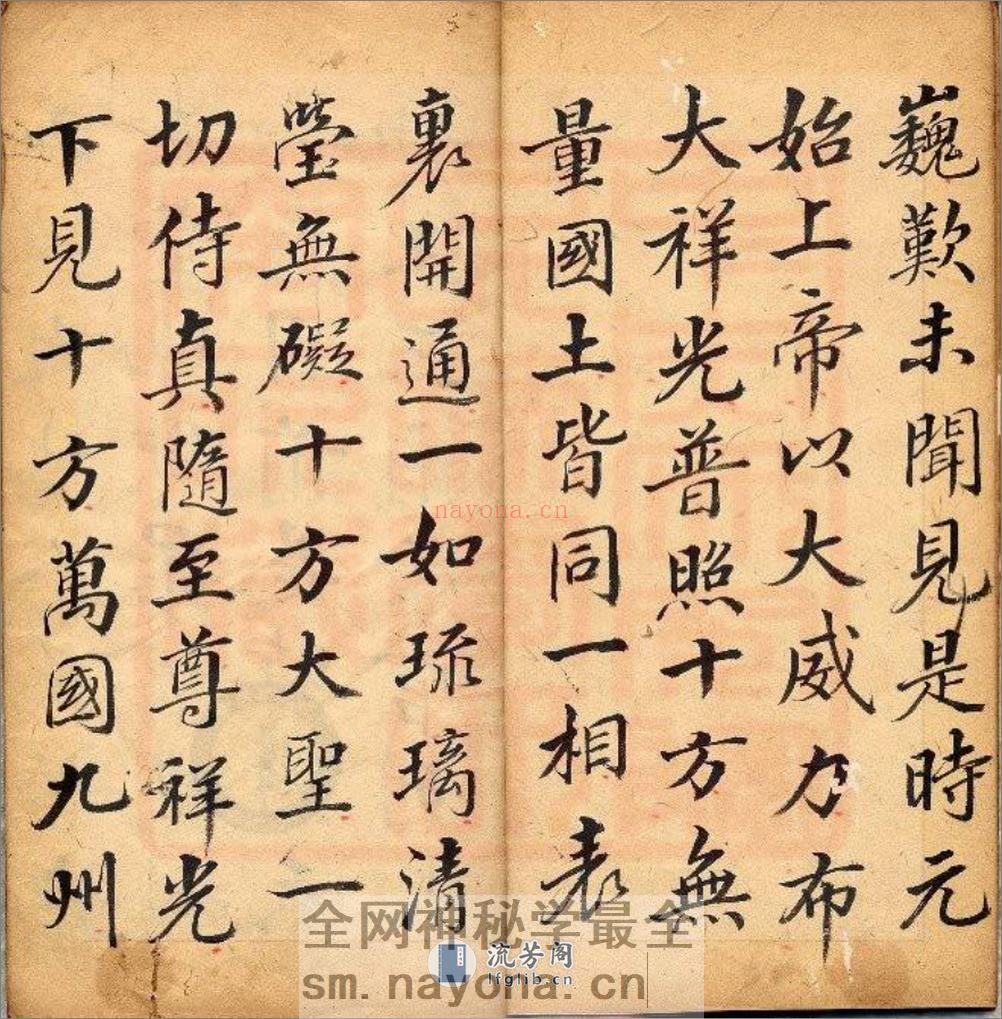 巍歎未聞見是時元
始上帝以大威力布
大祥光普照十方無
量國土皆同一相表
裏開通一如琉璃清
瑩無礙十方大聖一
切侍真隨至尊祥光
下見十方萬國九州
nayona.cn
全网神秘学最全
流芳阁
lfglib.cn
sm.nayona.cn